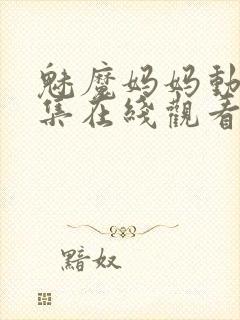 魅魔妈妈動
集在綫觀看
黯奴